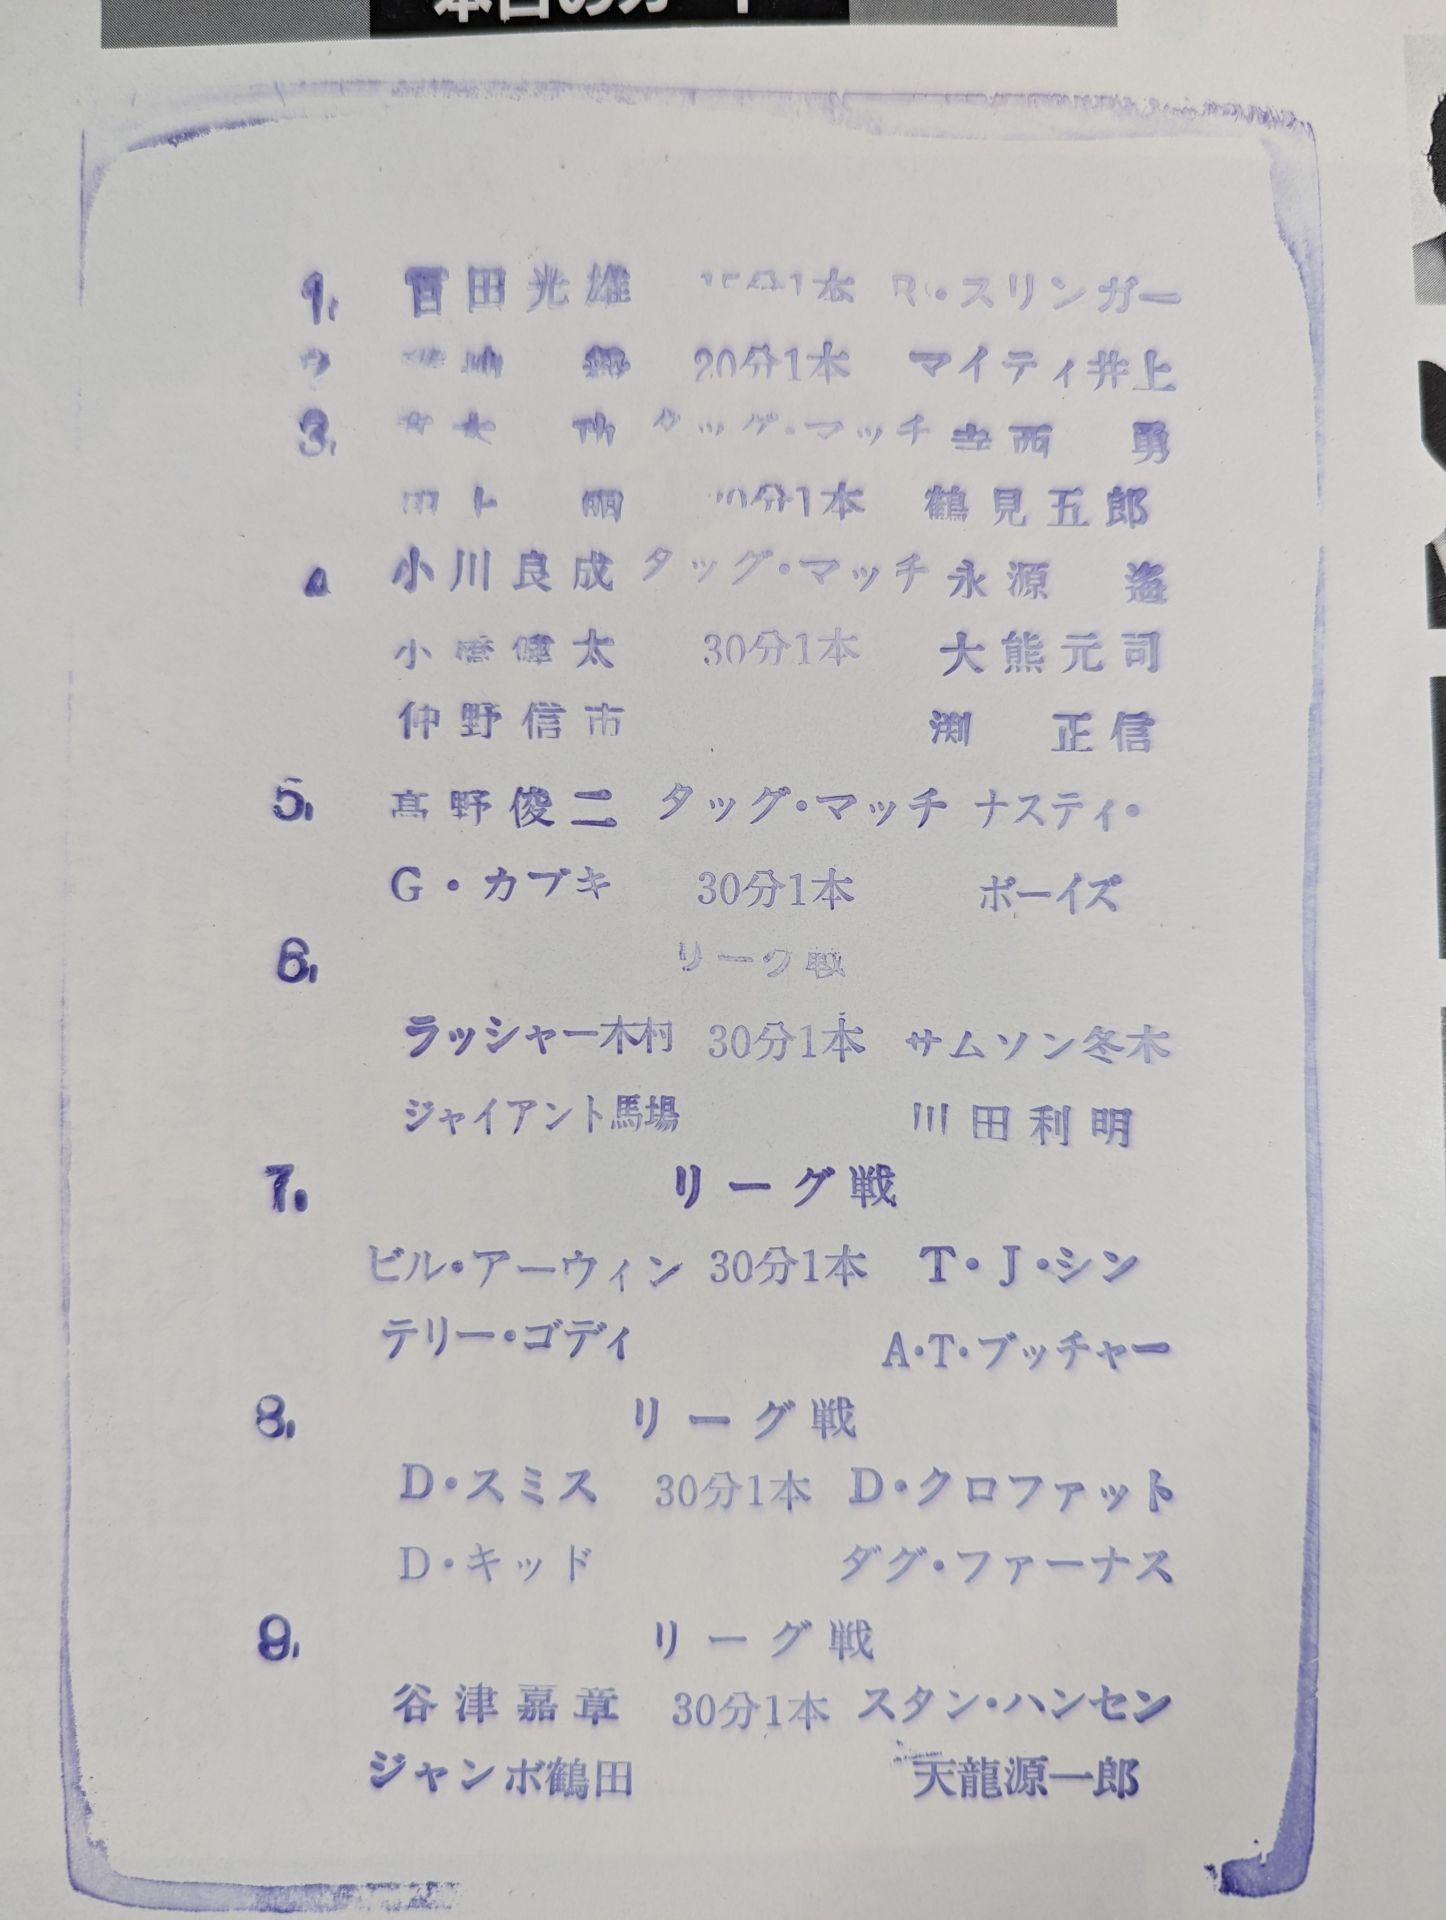 本日のカード
1. 百田光雄 15分1本 R・スリンガー
20分1本 マイティ井上
3. タッグ・マッチ 寺西 勇
分1本 鶴見五郎
小川良成 タッグ・マッチ 永源 遙
小橋健太 30分1本 大熊元司
仲野信市 渕 正信
5. 高野俊二 タッグ・マッチ ナスティ・
G・カブキ 30分1本 ボーイズ
6. リーグ戦
ラッシャー木村 30分1本 サムソン冬木
ジャイアント馬場 川田利明
7. リーグ戦
ビル・アーウィン 30分1本 T・J・シン
テリー・ゴディ A・T・ブッチャー
8. リーグ戦
D・スミス 30分1本 D・クロファット
D・キッド ダグ・ファーナス
9. リーグ戦
谷津嘉章 30分1本 スタン・ハンセン
ジャンボ鶴田 天龍源一郎